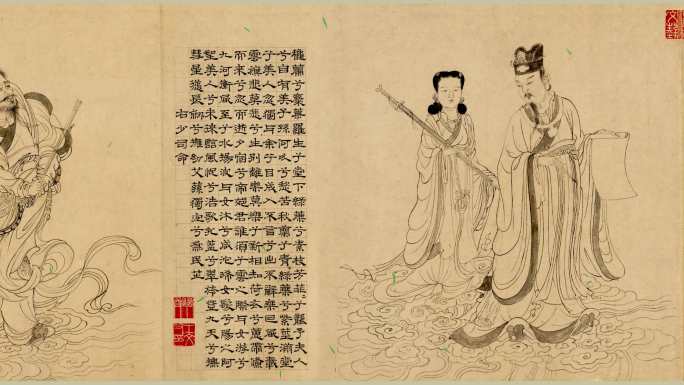 穐蘭兮麋蕪羅生兮堂下綠葉兮素枝芳菲菲兮襲予夫人
兮自有美子蓀何以兮愁苦秋蘭兮青青綠葉兮紫莖滿堂
兮美人忽獨與余兮目成入不言兮出不辭乘回風兮載
雲旗悲莫悲兮生別離樂莫樂兮新相知荷衣兮蕙帶儵
而來兮忽而逝夕宿兮帝郊君誰須兮雲之際與女游兮
九河衝風至兮水揚波與女沐兮咸池晞女髮兮陽之阿
望美人兮未徠臨風怳兮浩歌孔蓋兮翠旍登九天兮撫
彗星竦長劍兮擁幼艾蓀獨宜兮為民正
右少司命